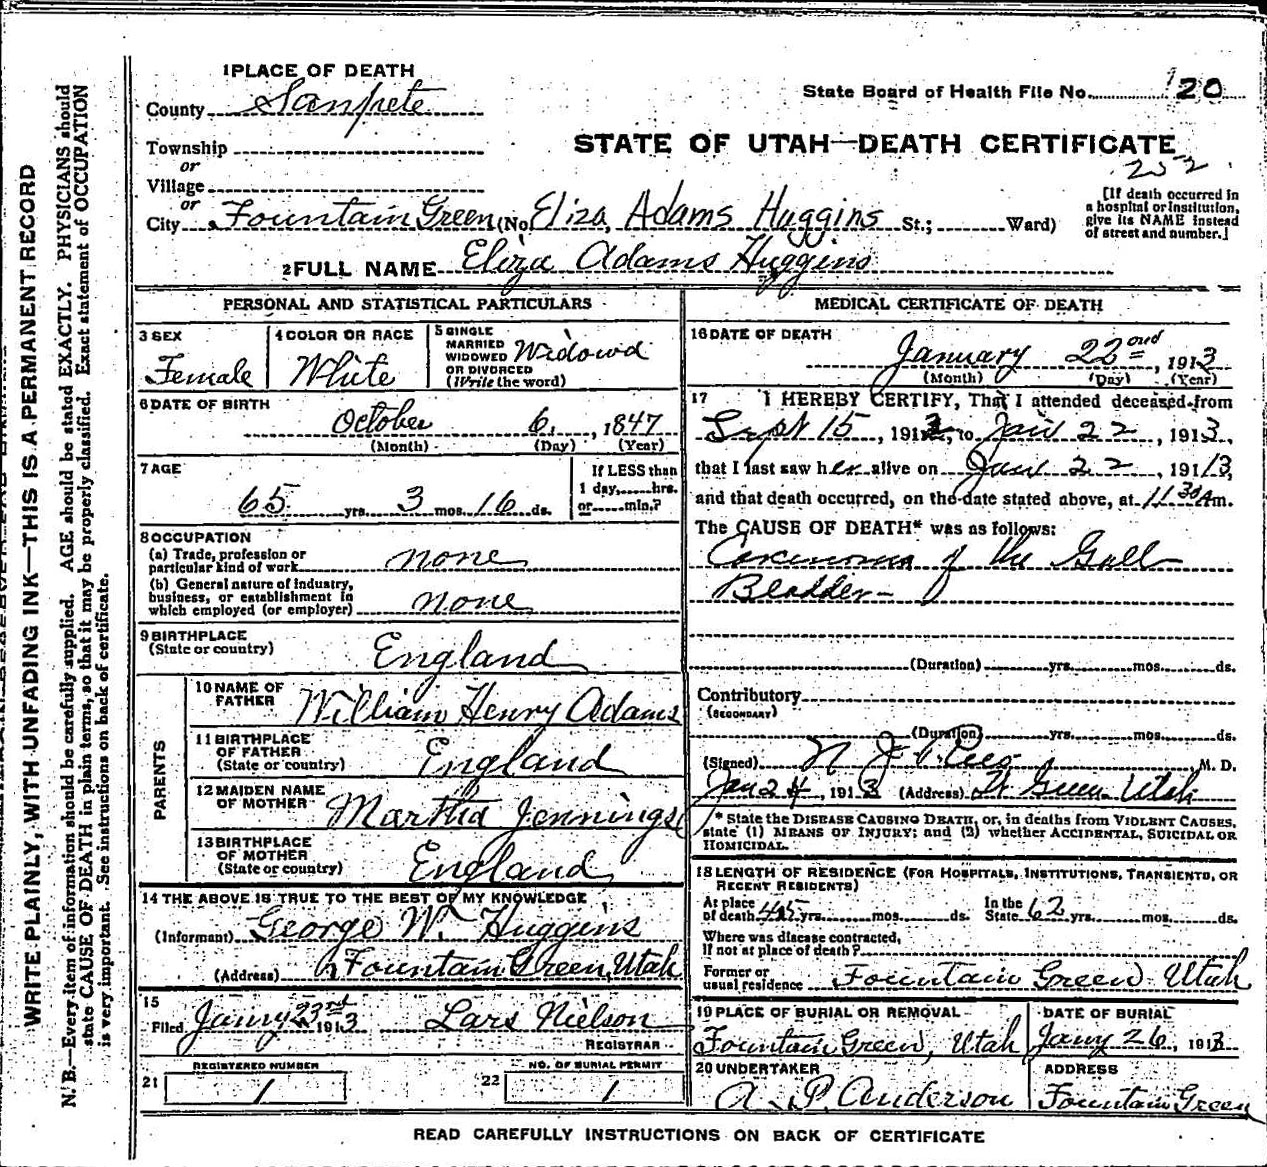 WRITE PLAINLY, WITH UNFADING INK—THIS IS A PERMANENT RECORD
N. B.—Every item of information should be carefully supplied. AGE should be stated EXACTLY. PHYSICIANS should
state CAUSE OF DEATH in plain terms, so that it may be properly classified. Exact statement of OCCUPATION
is very important. See instructions on back of certificate.
1 PLACE OF DEATH
County Sanpete
State Board of Health File No. 20
Township
STATE OF UTAH—DEATH CERTIFICATE
252
or
Village
or
City Fountain Green (No Eliza Adams Huggins St.; Ward)
[If death occurred in
a hospital or institution,
give its NAME instead
of street and number.]
2 FULL NAME Eliza Adams Huggins
PERSONAL AND STATISTICAL PARTICULARS
3 SEX
Female
4 COLOR OR RACE
White
5 SINGLE
MARRIED
WIDOWED
OR DIVORCED
(Write the word)
Widowd
6 DATE OF BIRTH
October 6, 1847
(Month) (Day) (Year)
7 AGE
65 yrs. 3 mos. 16 ds.
If LESS than
1 day, hrs.
or min.?
8 OCCUPATION
(a) Trade, profession or
particular kind of work none
(b) General nature of industry,
business, or establishment in
which employed (or employer) none
9 BIRTHPLACE
(State or country) England
PARENTS
10 NAME OF
FATHER William Henry Adams
11 BIRTHPLACE
OF FATHER
(State or country) England
12 MAIDEN NAME
OF MOTHER Martha Jennings
13 BIRTHPLACE
OF MOTHER
(State or country) England
14 THE ABOVE IS TRUE TO THE BEST OF MY KNOWLEDGE
(Informant) George W. Huggins
(Address) Fountain Green, Utah
15
Filed Jany 23rd 1913 Lars Nielson
REGISTRAR
21 REGISTERED NUMBER
1
22 NO. OF BURIAL PERMIT
1
MEDICAL CERTIFICATE OF DEATH
16 DATE OF DEATH
January 22ond, 1913
(Month) (Day) (Year)
17 I HEREBY CERTIFY, That I attended deceased from
Sept 15, 1912, to Jan 22, 1913,
that I last saw her alive on Jan 22, 19113,
and that death occurred, on the date stated above, at 11 30 Am.
The CAUSE OF DEATH* was as follows:
Carcinoma of the Gall
Bladder-
(Duration) yrs. mos. ds.
Contributory
(SECONDARY)
(Duration) yrs. mos. ds.
(Signed) N J Rees M. D.
Jan 24, 1913 (Address) Ft Green Utah
* State the DISEASE CAUSING DEATH, or, in deaths from VIOLENT CAUSES,
state (1) MEANS OF INJURY; and (2) whether ACCIDENTAL, SUICIDAL OR
HOMICIDAL.
18 LENGTH OF RESIDENCE (FOR HOSPITALS, INSTITUTIONS, TRANSIENTS, OR
RECENT RESIDENTS)
At place
of death 45 yrs. mos. ds.
In the
State 62 yrs. mos. ds.
Where was disease contracted,
if not at place of death?
Former or
usual residence Fountain Green Utah
19 PLACE OF BURIAL OR REMOVAL
Fountain Green, Utah
DATE OF BURIAL
Jany 26, 1913
20 UNDERTAKER
A. P. Anderson
ADDRESS
Fountain Green
READ CAREFULLY INSTRUCTIONS ON BACK OF CERTIFICATE